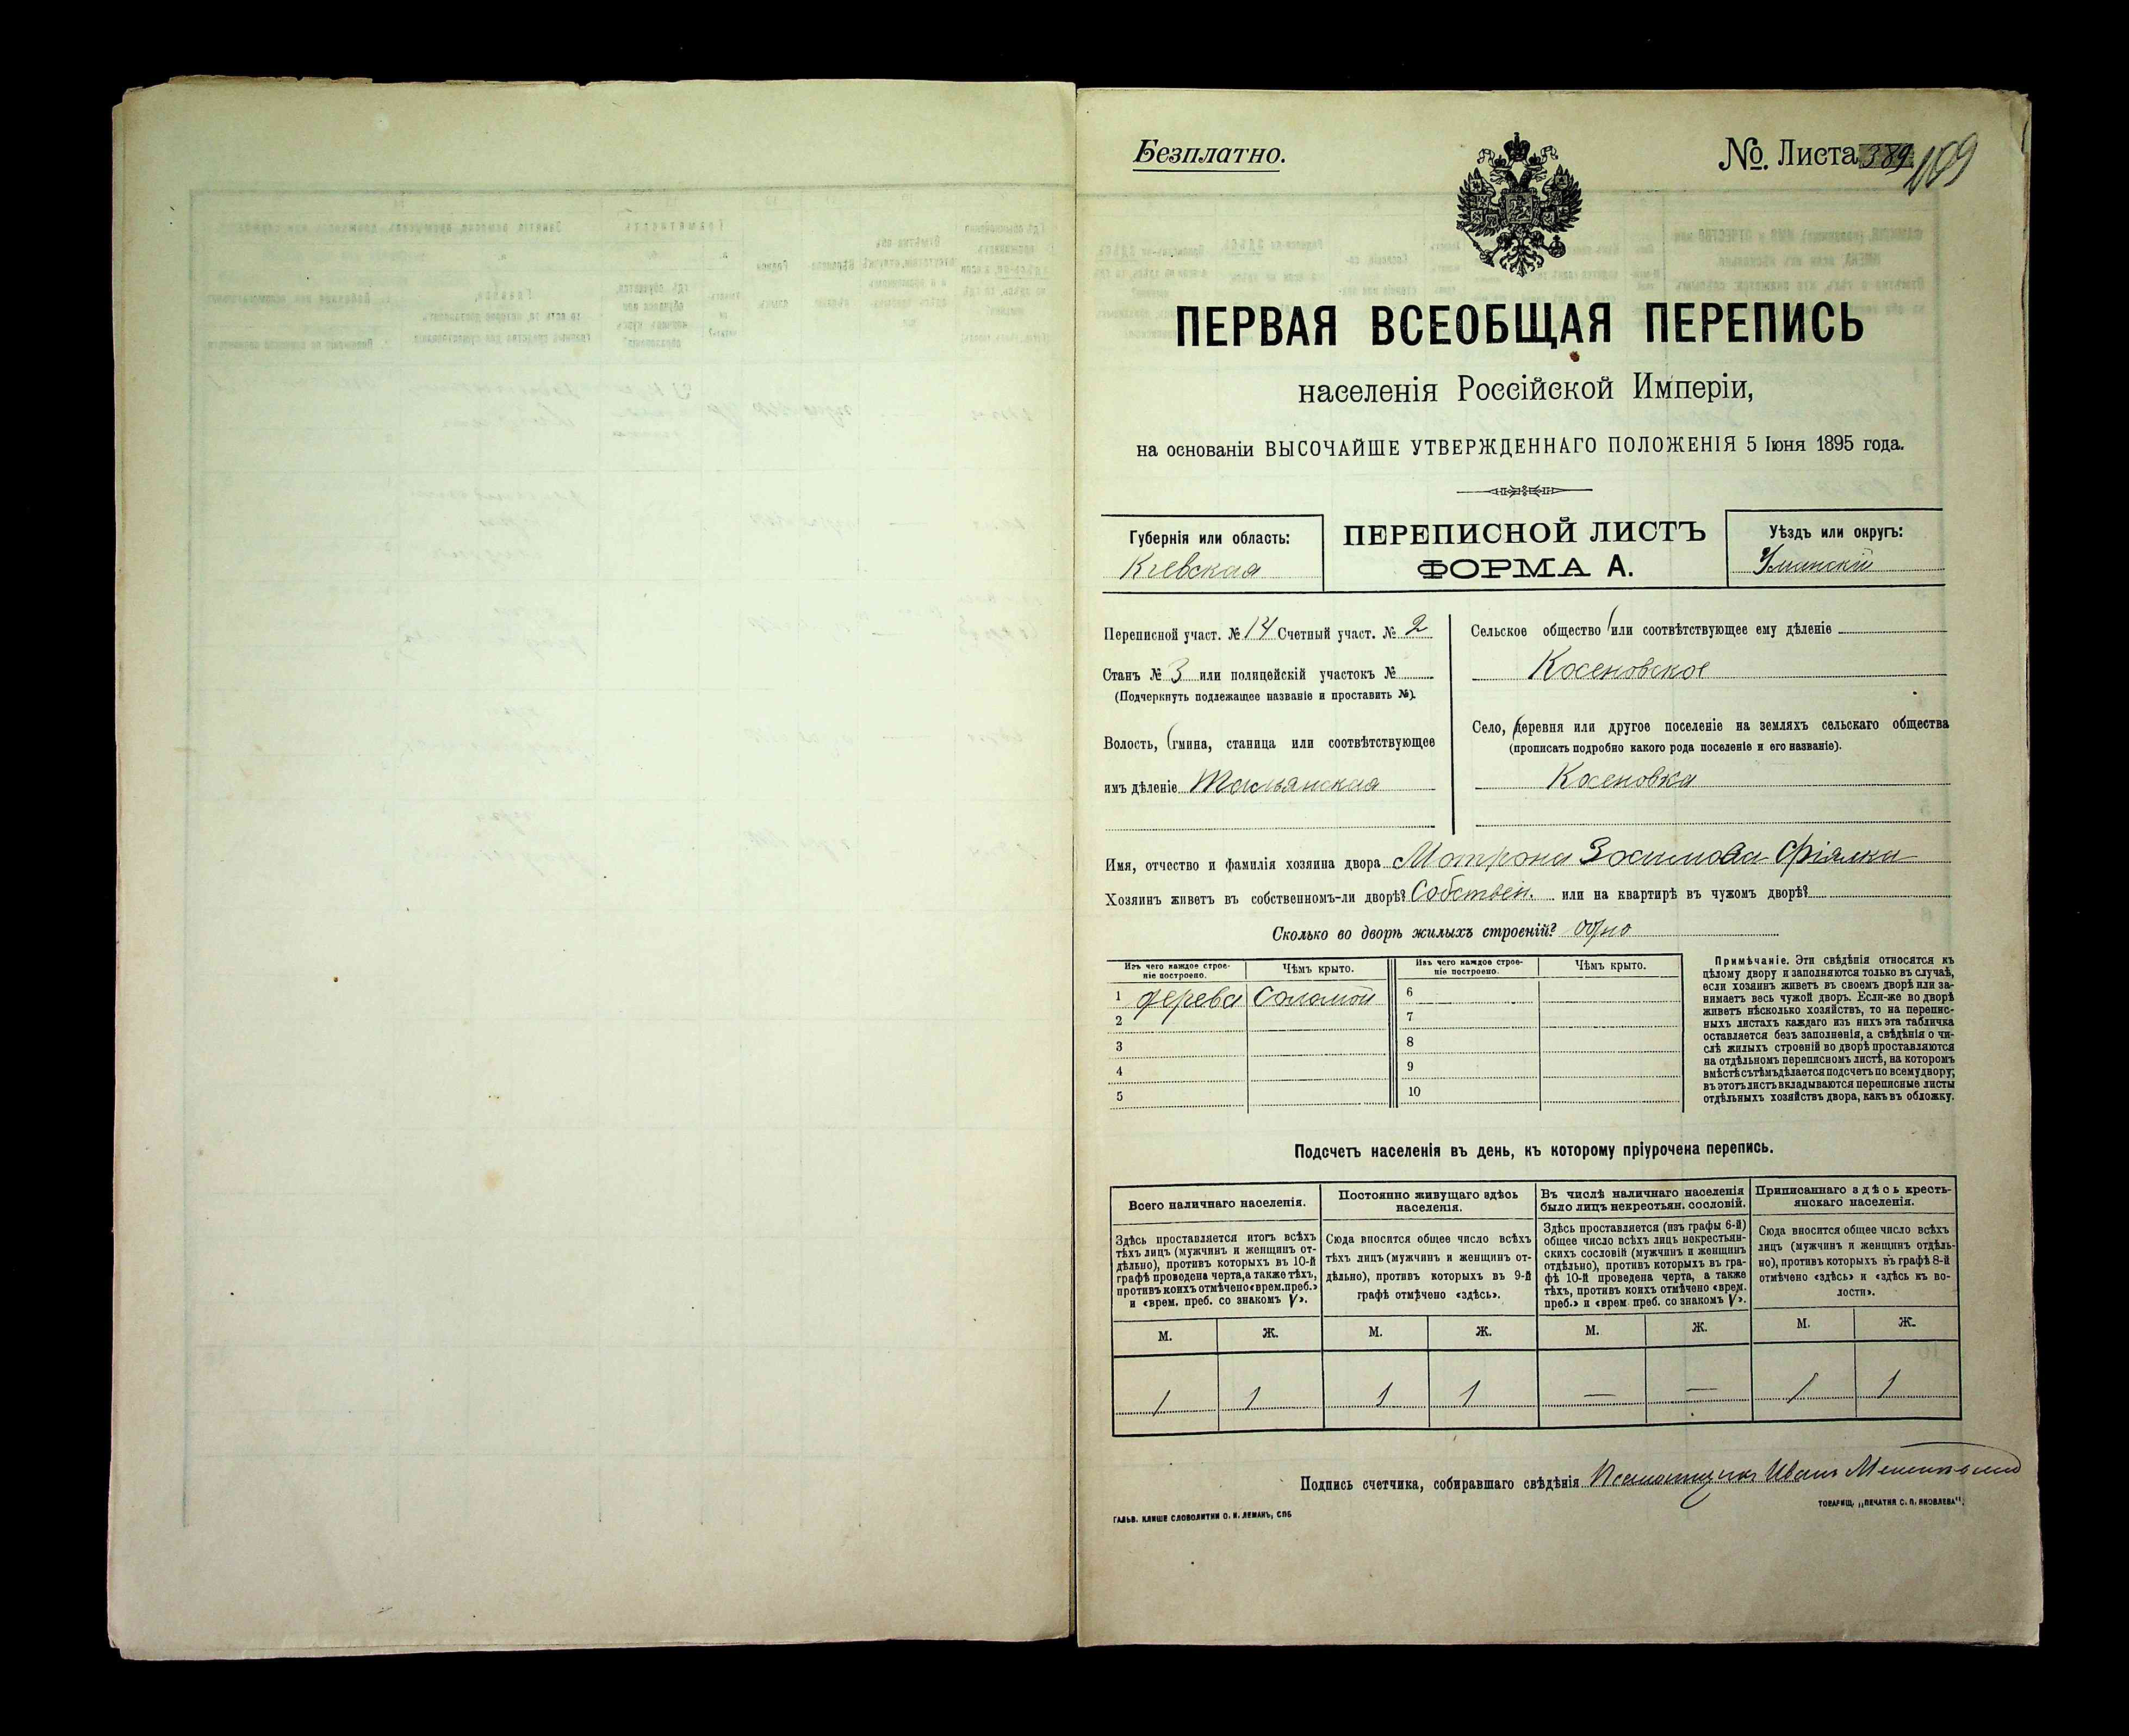 Безплатно.
№. Листа 389 109
ПЕРВАЯ ВСЕОБЩАЯ ПЕРЕПИСЬ
населенія Россійской Имперіи,
на основаніи ВЫСОЧАЙШЕ УТВЕРЖДЕННАГО ПОЛОЖЕНІЯ 5 Іюня 1895 года.
Губернія или область:
Кіевская
ПЕРЕПИСНОЙ ЛИСТЪ
ФОРМА А.
Уѣздъ или округъ:
Уманскій
Переписной участ. № 14 Счетный участ. № 2
Станъ № 3 или полицейскій участокъ №
(Подчеркнуть подлежащее названіе и проставить №).
Волость, (гмина, станица или соотвѣтствующее
имъ дѣленіе Тальянская
Сельское общество (или соотвѣтствующее ему дѣленіе
Косеновское
Село, деревня или другое поселеніе на земляхъ сельскаго общества
(прописать подробно какого рода поселеніе и его названіе).
Косеновка
Имя, отчество и фамилія хозяина двора Мотрона Зосимова Фіялка
Хозяинъ живетъ въ собственномъ-ли дворѣ? Собствен. или на квартирѣ въ чужомъ дворѣ?
Сколько во дворѣ жилыхъ строеній? одно
Изъ чего каждое строе-
ніе построено.
Чѣмъ крыто.
Изъ чего каждое строе-
ніе построено.
Чѣмъ крыто.
1 дерева Соломой 6
2 7
3 8
4 9
5 10
Примѣчаніе. Эти свѣдѣнія относятся къ
цѣлому двору и заполняются только въ случаѣ,
если хозяинъ живетъ въ своемъ дворѣ или за-
нимаетъ весь чужой дворъ. Если-же во дворѣ
живетъ нѣсколько хозяйствъ, то на перепис-
ныхъ листахъ каждаго изъ нихъ эта табличка
оставляется безъ заполненія, а свѣдѣнія о чи-
слѣ жилыхъ строеній во дворѣ проставляются
на отдѣльномъ переписномъ листѣ, на которомъ
вмѣстѣ съ тѣмъ дѣлается подсчетъ по всему двору;
въ этотъ листъ вкладываются переписные листы
отдѣльныхъ хозяйствъ двора, какъ въ обложку.
Подсчетъ населенія въ день, къ которому пріурочена перепись.
Всего наличнаго населенія.
Здѣсь проставляется итогъ всѣхъ
тѣхъ лицъ (мужчинъ и женщинъ от-
дѣльно), противъ которыхъ въ 10-й
графѣ проведена черта, а также тѣхъ,
противъ коихъ отмѣчено «врем. преб.»
и «врем. преб. со знакомъ V».
Постоянно живущаго здѣсь
населенія.
Сюда вносится общее число всѣхъ
тѣхъ лицъ (мужчинъ и женщинъ от-
дѣльно), противъ которыхъ въ 9-й
графѣ отмѣчено «здѣсь».
Въ числѣ наличнаго населенія
было лицъ некрестьян. сословій.
Здѣсь проставляется (изъ графы 6-й)
общее число всѣхъ лицъ некрестьян-
скихъ сословій (мужчинъ и женщинъ
отдѣльно), противъ которыхъ въ гра-
фѣ 10-й проведена черта, а также
тѣхъ, противъ коихъ отмѣчено «врем.
преб.» и «врем. преб. со знакомъ V».
Приписаннаго здѣсь кресть-
янскаго населенія.
Сюда вносится общее число всѣхъ
лицъ (мужчинъ и женщинъ отдѣль-
но), противъ которыхъ въ графѣ 8-й
отмѣчено «здѣсь» и «здѣсь въ во-
лости».
М. Ж. М. Ж. М. Ж. М. Ж.
1 1 1 1 — — 1 1
Подпись счетчика, собиравшаго свѣдѣнія Иванъ
ГАЛЬВ. КЛИШЕ СЛОВОЛИТНИ О. И. ЛЕМАНЪ, СПБ
ТОВАРИЩ. „ПЕЧАТНЯ С. П. ЯКОВЛЕВА“.